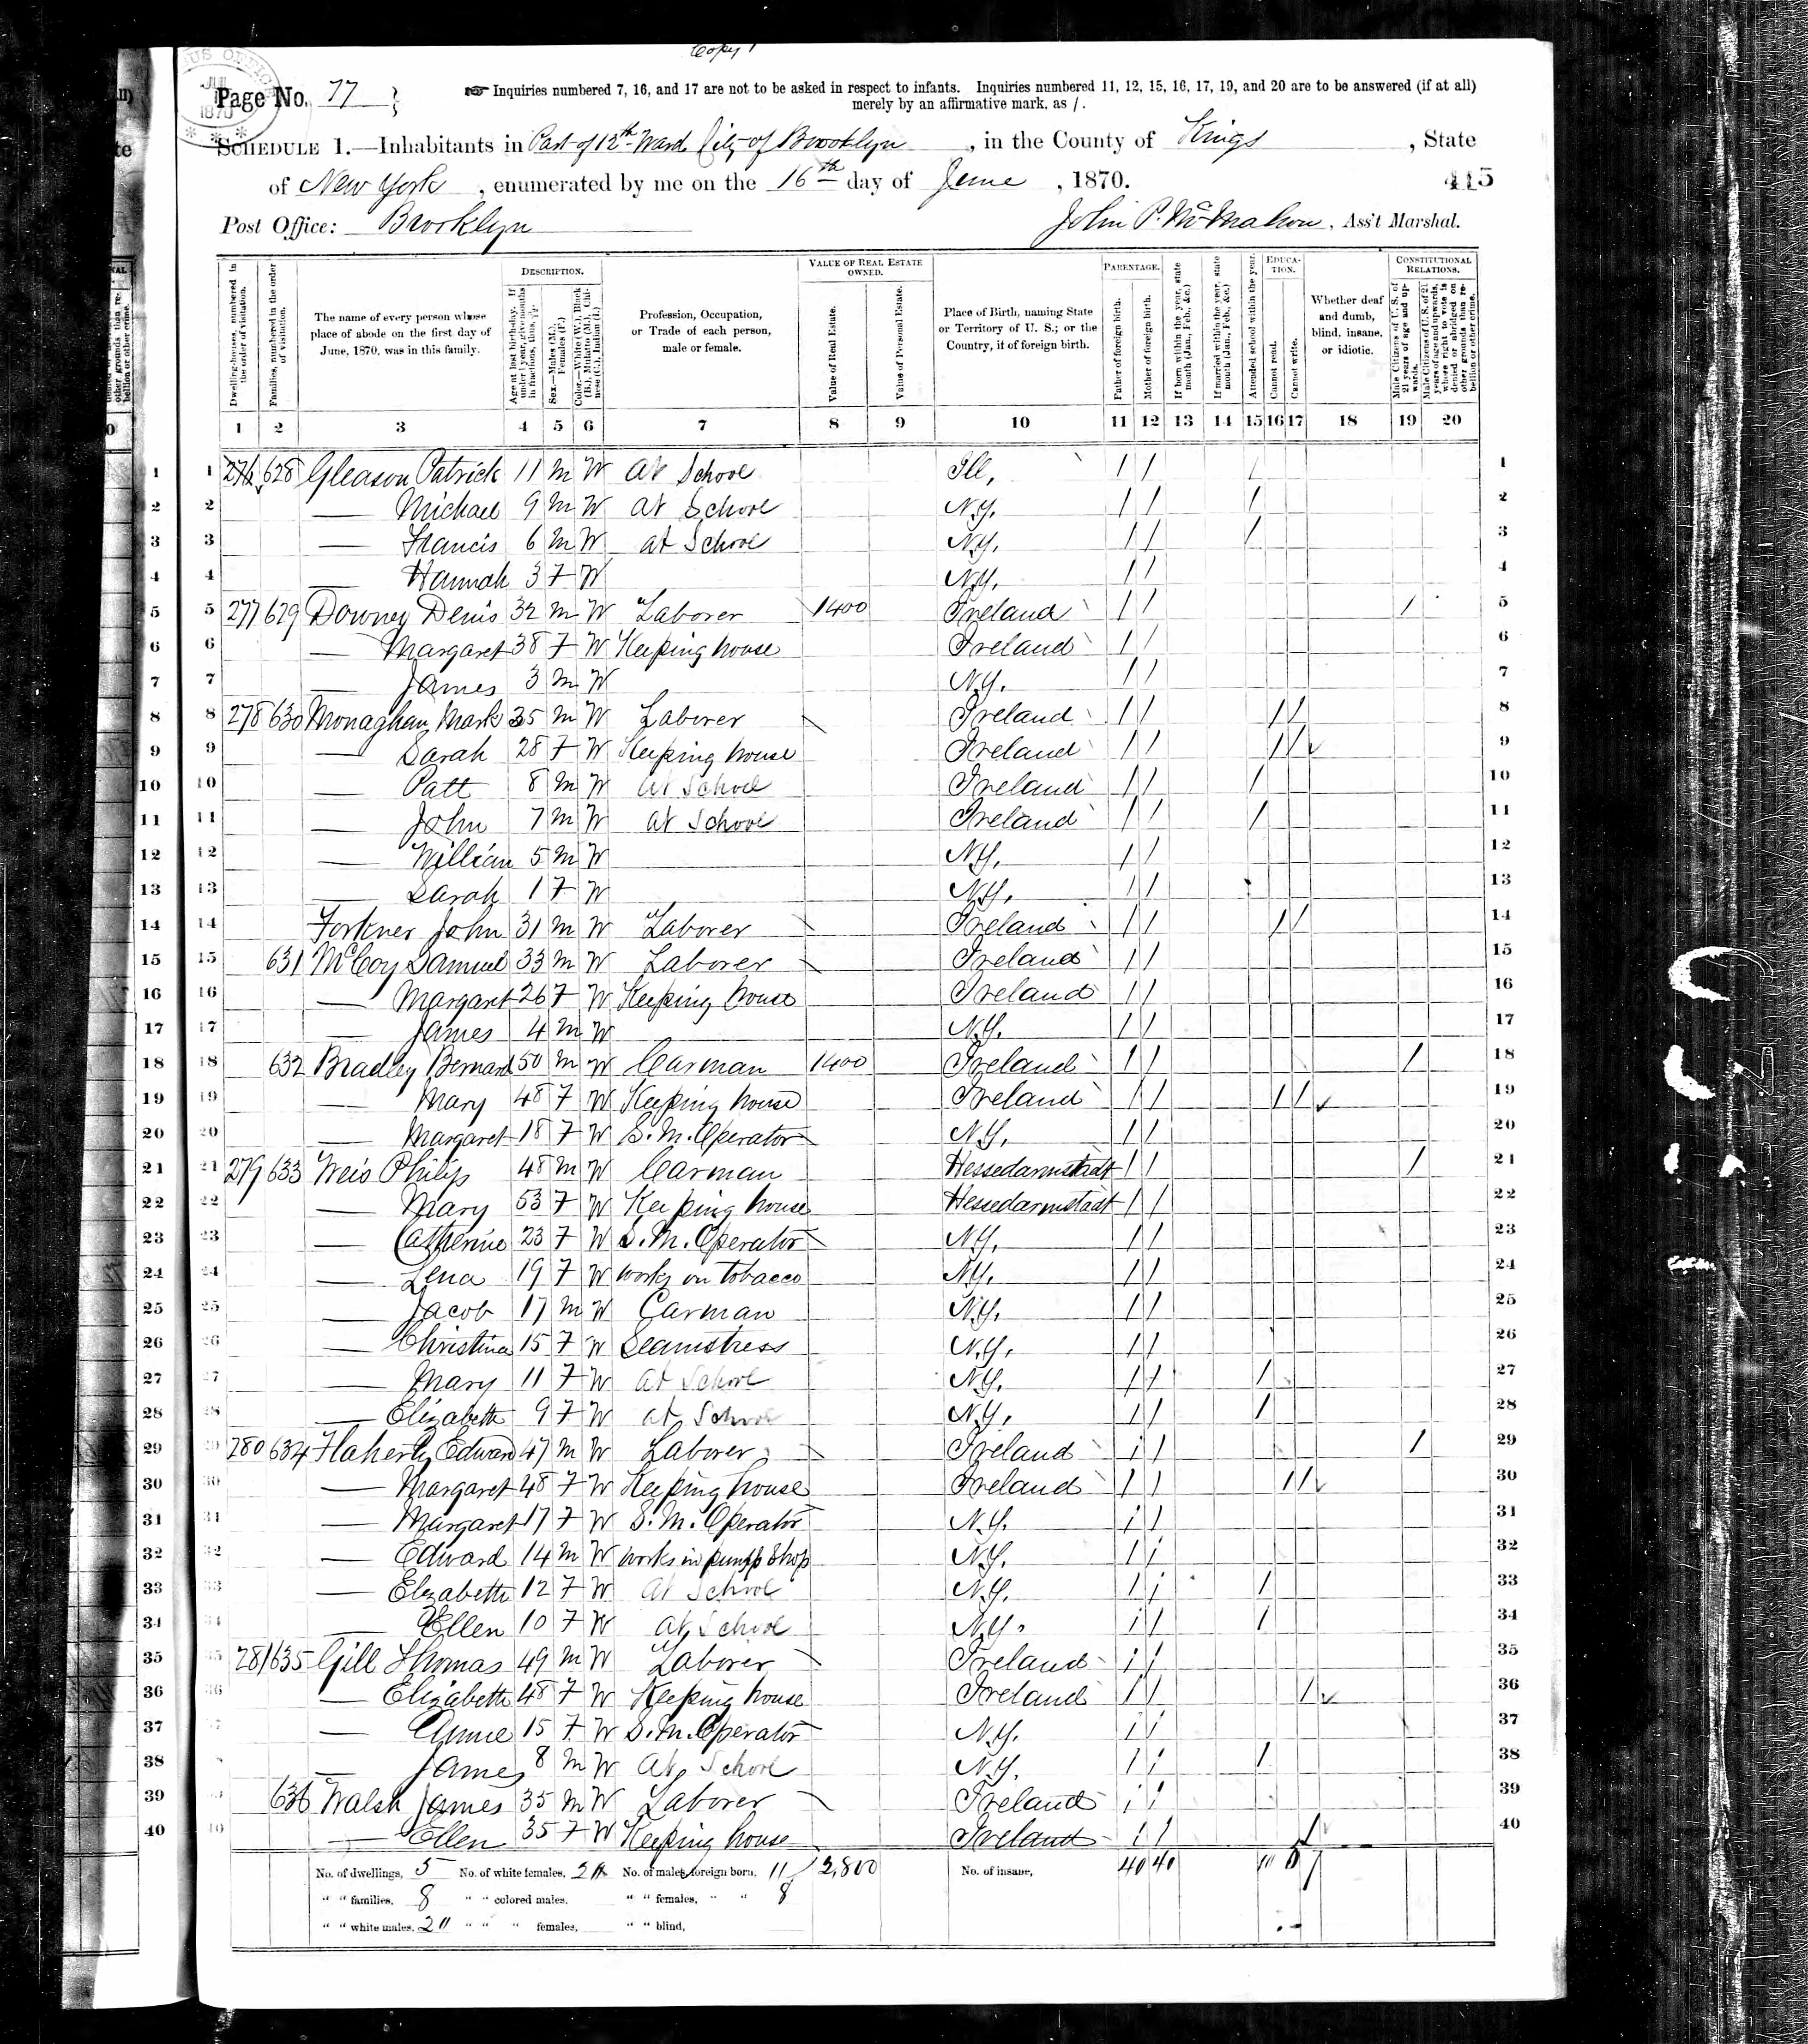 Copy 1
Page No. 77
☞ Inquiries numbered 7, 16, and 17 are not to be asked in respect to infants. Inquiries numbered 11, 12, 15, 16, 17, 19, and 20 are to be answered (if at all)
merely by an affirmative mark, as /.
SCHEDULE 1.—Inhabitants in Part of 12th Ward City of Brooklyn, in the County of Kings, State
of New York, enumerated by me on the 16th day of June, 1870. 415
Post Office: Brooklyn John P. McMahon, Ass't Marshal.
Dwelling-houses, numbered in the order of visitation.
Families, numbered in the order of visitation.
The name of every person whose place of abode on the first day of June, 1870, was in this family.
DESCRIPTION.
Age at last birth-day. If under 1 year, give months in fractions, thus,
Sex.—Males (M.), Females (F.)
Color.—White (W.), Black (B.), Mulatto (M.), Chinese (C.), Indian (I.)
Profession, Occupation, or Trade of each person, male or female.
VALUE OF REAL ESTATE OWNED.
Value of Real Estate.
Value of Personal Estate.
Place of Birth, naming State or Territory of U. S.; or the Country, if of foreign birth.
PARENTAGE.
Father of foreign birth.
Mother of foreign birth.
If born within the year, state month (Jan., Feb., &c.)
If married within the year, state month (Jan., Feb., &c.)
EDUCATION.
Attended school within the year.
Cannot read.
Cannot write.
Whether deaf and dumb, blind, insane, or idiotic.
CONSTITUTIONAL RELATIONS.
Male Citizens of U. S. of 21 years of age and upwards.
Male Citizens of U. S. of 21 years of age and upwards, whose right to vote is denied or abridged on other grounds than rebellion or other crime.
1 2 3 4 5 6 7 8 9 10 11 12 13 14 15 16 17 18 19 20
1 276 628 Gleason Patrick 11 M W At School Ill. / / / 1
2 — Michael 9 M W at School N.Y. / / / 2
3 — Francis 6 M W at School N.Y. / / / 3
4 — Hannah 3 F W N.Y. / / 4
5 277 629 Downey Denis 32 M W Laborer 1400 Ireland / / / 5
6 — Margaret 38 F W Keeping house Ireland / / 6
7 — James 3 M W N.Y. / / 7
8 278 630 Monaghan Mark 35 M W Laborer Ireland / / / / 8
9 — Sarah 28 F W Keeping house Ireland / / / / 9
10 — Patt 8 M W At School Ireland / / / 10
11 — John 7 M W at School Ireland / / / 11
12 — William 5 M W N.Y. / / 12
13 — Sarah 1 F W N.Y. / / 13
14 Forkner John 31 M W Laborer Ireland / / / / 14
15 631 McCoy Samuel 33 M W Laborer Ireland / / 15
16 — Margaret 26 F W Keeping house Ireland / / 16
17 — James 4 M W N.Y. / / 17
18 632 Bradley Bernard 50 M W Carman 1400 Ireland / / / 18
19 — Mary 48 F W Keeping house Ireland / / / / 19
20 — Margaret 18 F W S. M. Operator N.Y. / / 20
21 279 633 Weis Philip 48 M W Carman Hessedarmstadt / / / 21
22 — Mary 53 F W Keeping house Hessedarmstadt / / 22
23 — Catherine 23 F W S. M. Operator N.Y. / / 23
24 — Lena 19 F W works on tobacco N.Y. / / 24
25 — Jacob 17 M W Carman N.Y. / / 25
26 — Christina 15 F W Seamstress N.Y. / / 26
27 — Mary 11 F W At School N.Y. / / / 27
28 — Elizabeth 9 F W at School N.Y. / / / 28
29 280 634 Flaherty Edward 47 M W Laborer Ireland / / / 29
30 — Margaret 48 F W Keeping house Ireland / / / / 30
31 — Margaret 17 F W S. M. Operator N.Y. / / 31
32 — Edward 14 M W works in pump Shop N.Y. / / 32
33 — Elizabeth 12 F W At School N.Y. / / / 33
34 — Ellen 10 F W at School N.Y. / / / 34
35 281 635 Gill Thomas 49 M W Laborer Ireland / / 35
36 — Elizabeth 48 F W Keeping house Ireland / / / 36
37 — Annie 15 F W S. M. Operator N.Y. / / 37
38 — James 8 M W At School N.Y. / / / 38
39 636 Walsh James 35 M W Laborer Ireland / / 39
40 — Ellen 35 F W Keeping house Ireland / / / 40
No. of dwellings, 5 No. of white females, 20 No. of males, foreign born, 11 2,800 No. of insane, 40 40 10
" " families, 8 " " colored males, " " females, " " 8
" " white males, 20 " " " females, " " blind,